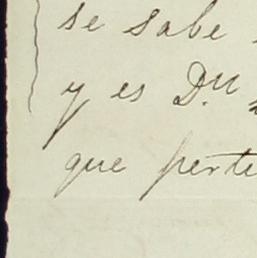 se sabe
y es Dn
que perte